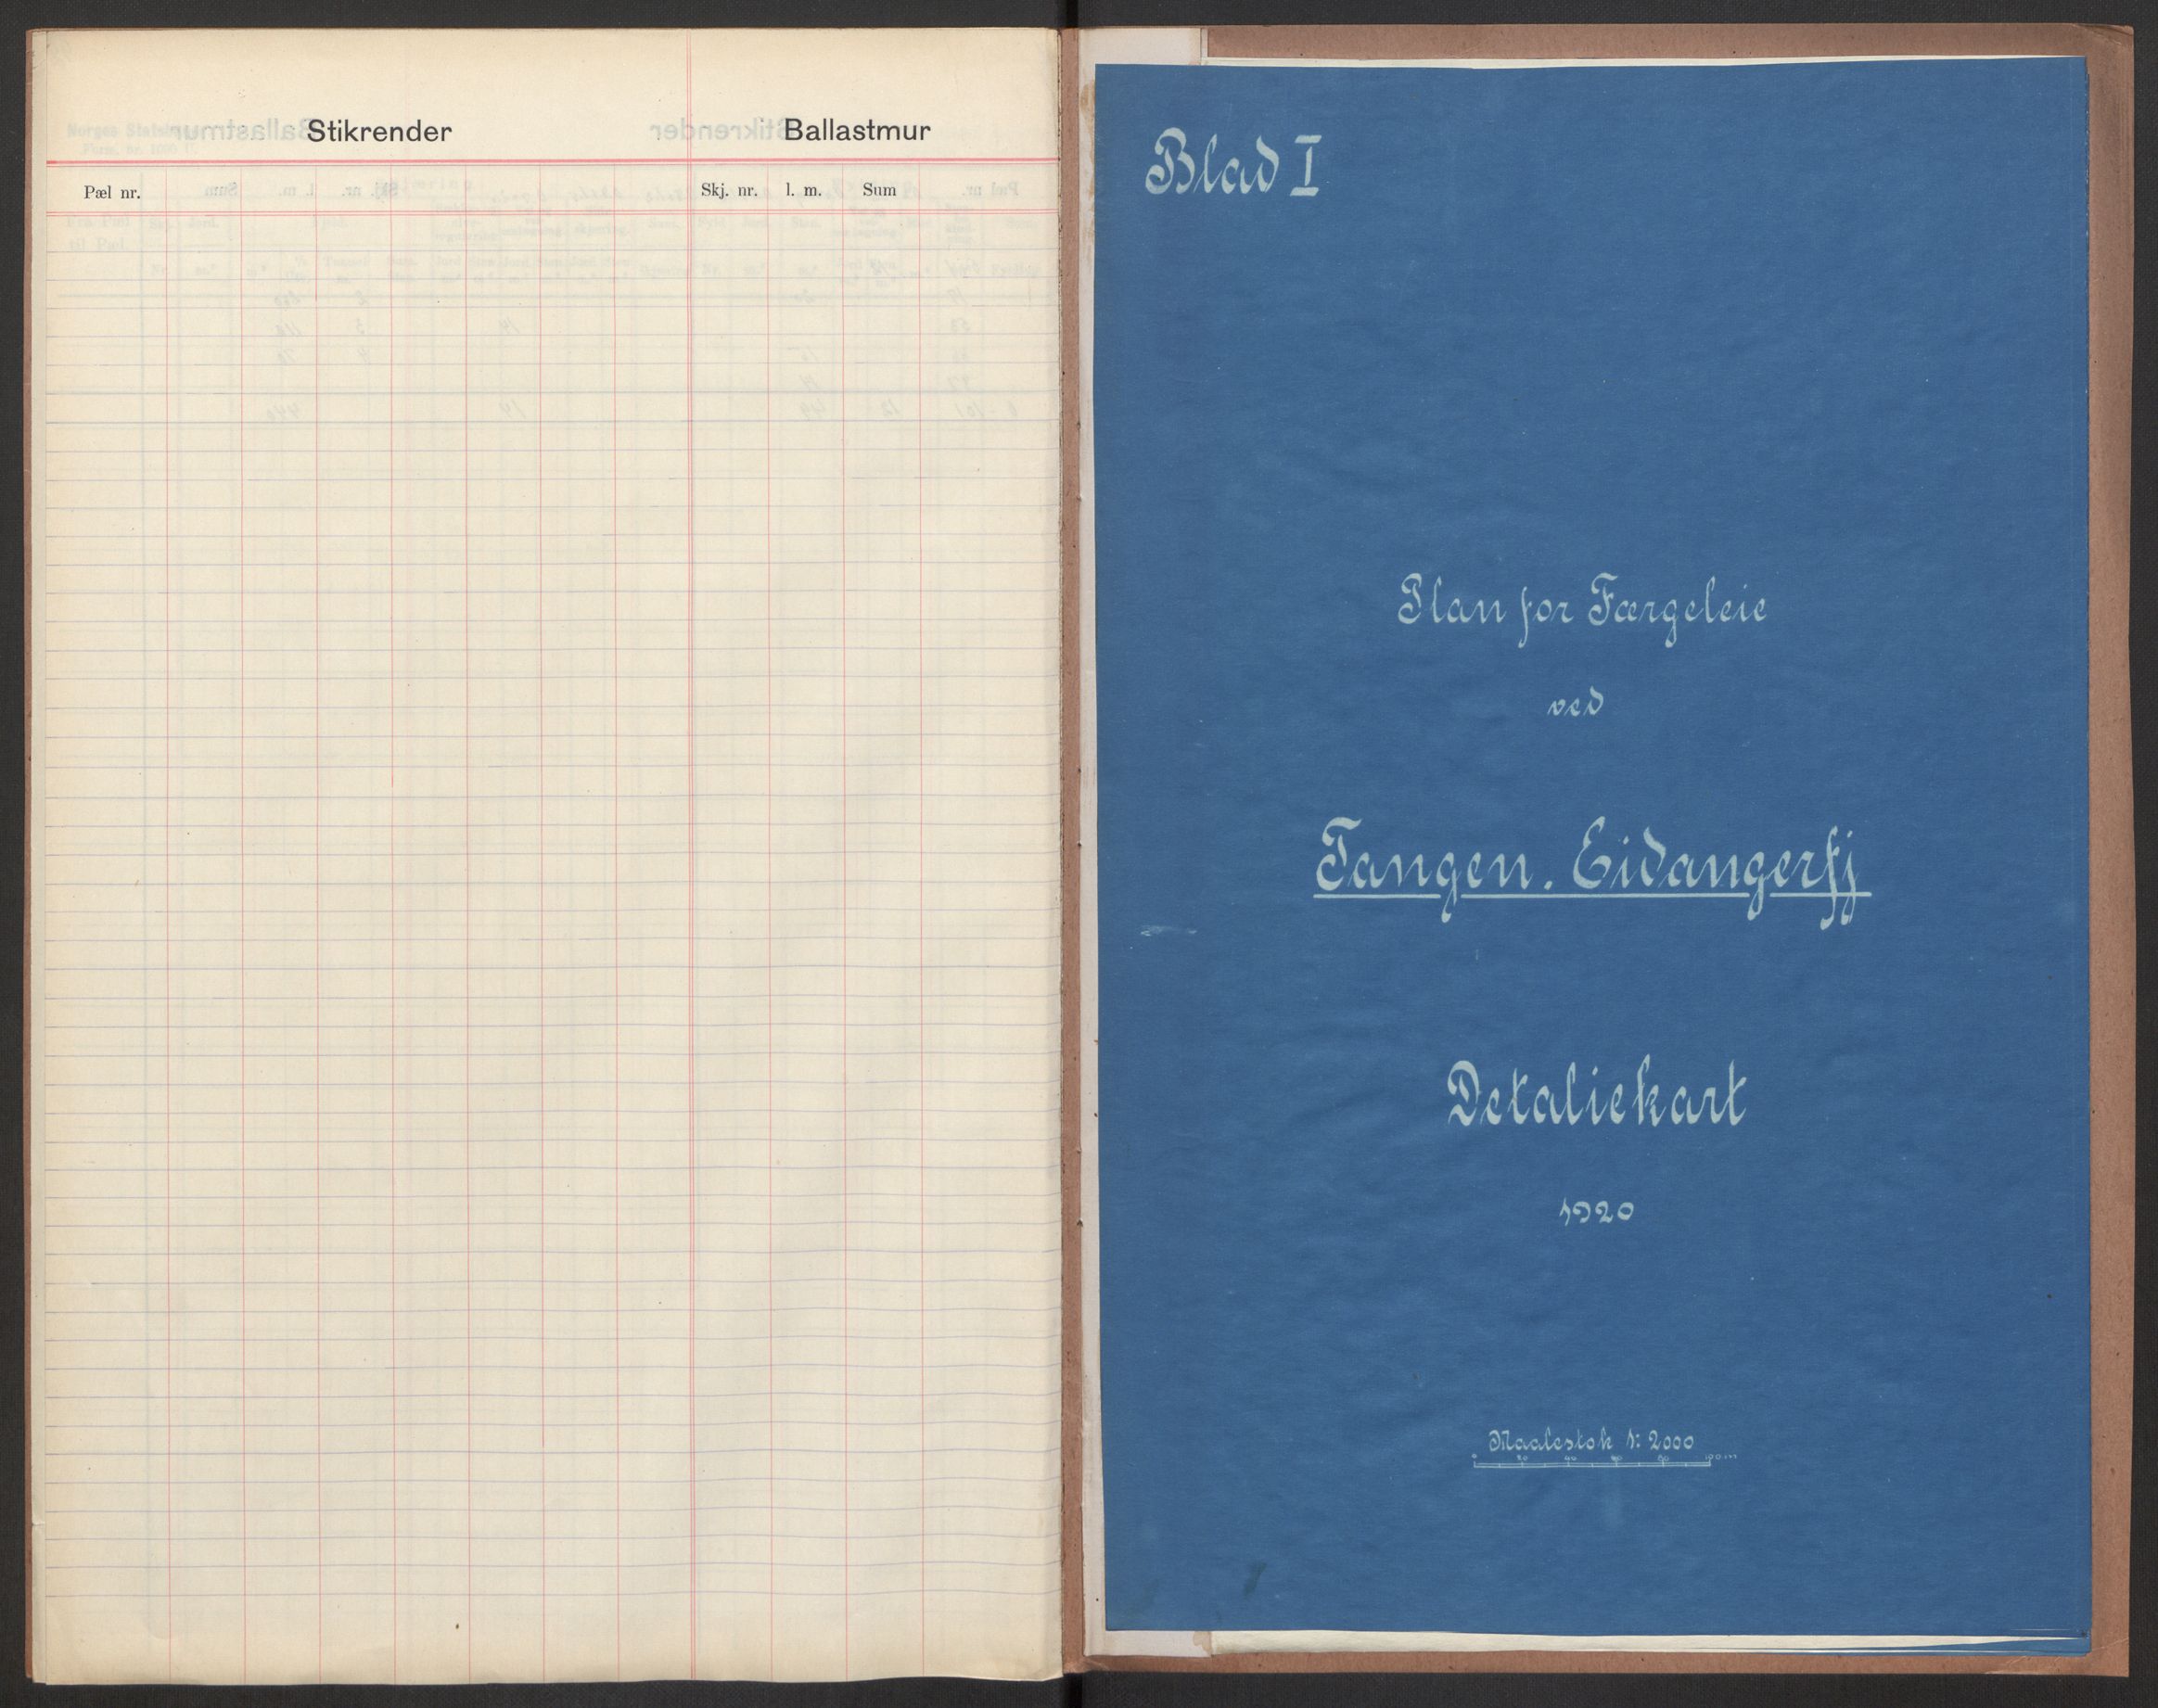 Stikrender Ballastmur
Pæl nr. Skj. nr. l. m. Sum
Blad I
Plan for Færgeleie
ved
Tangen. Eidangerfj
Detaliekart
1920
Maalestok 1: 2000
0 20 40 60 80 100 m